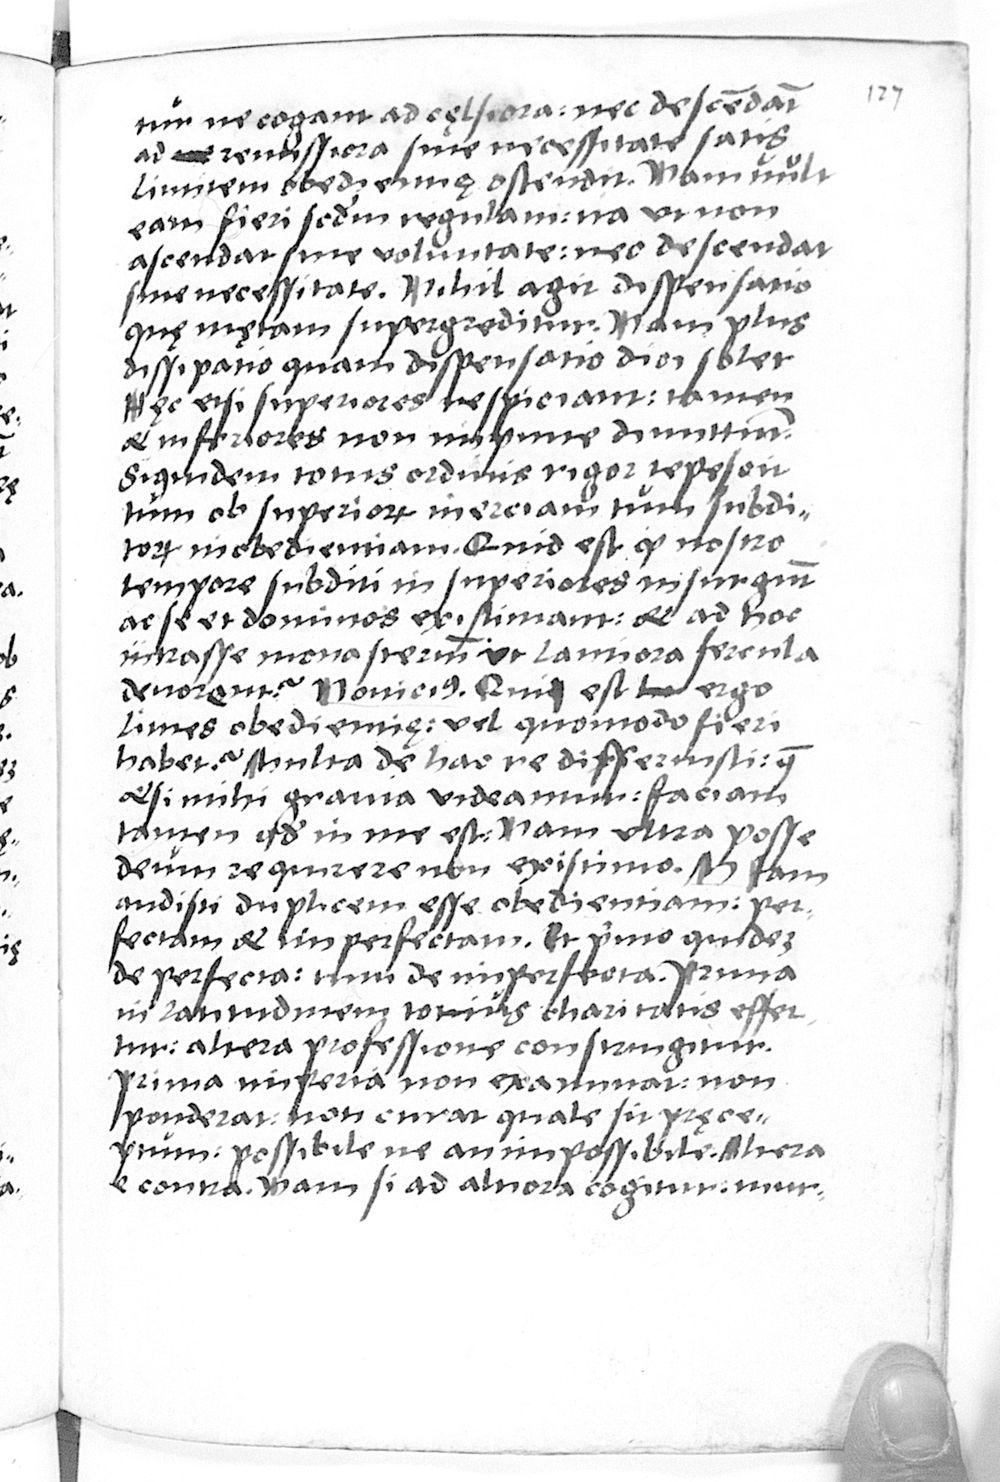 127
tur ne cogant ad cęlsiora: nec descēdāt
ad remissiora sine necessitate satis
limitem obedientię ostendit. Nam uult
eam fieri scd̄m regulam: ita vt non
ascendat sine voluntate: nec descendat
sine necessitate. Nihil agit dispensatio
quę mętam supergreditur. Nam plus
dissipatio quam dispensatio dici solet
Nęc etsi superiores respiciant: tamen
& inferiores non impune dimittūt.
Siquidem totius ordinis rigor tepescit
tum ob superioꝝ inerciam tum subdi„
toꝝ inobedientiam. Quid est qꝫ nostro
tempore subditi in superiores insurgūt
ac se et dominos existimant: & ad hoc
intrasse monasteriū vt lautiora fercula
deuorent? Nouiciꝰ. Quis est ergo
limes obedientię: vel quomodo fieri
habet? Multa de hac re disseruisti: q̄
&si mihi grauia videantur: faciam
tamen qd̄ in me est: Nam vltra posse
deum requirere non existimo. M Iam
audisti duplicem esse obedientiam: per„
fectam & imperfectam. Et p̄mo quidez
de perfecta: tum de imperfecta. Prima
in latitudinem totius charitatis effer„
tur: altera professione constringitur.
Prima imperia non examinat: non
ponderat: non curat quale sit pręce„
ptum: possibile ne an impossibile. Altera
e contra. Nam si ad altiora cogitur: mur„